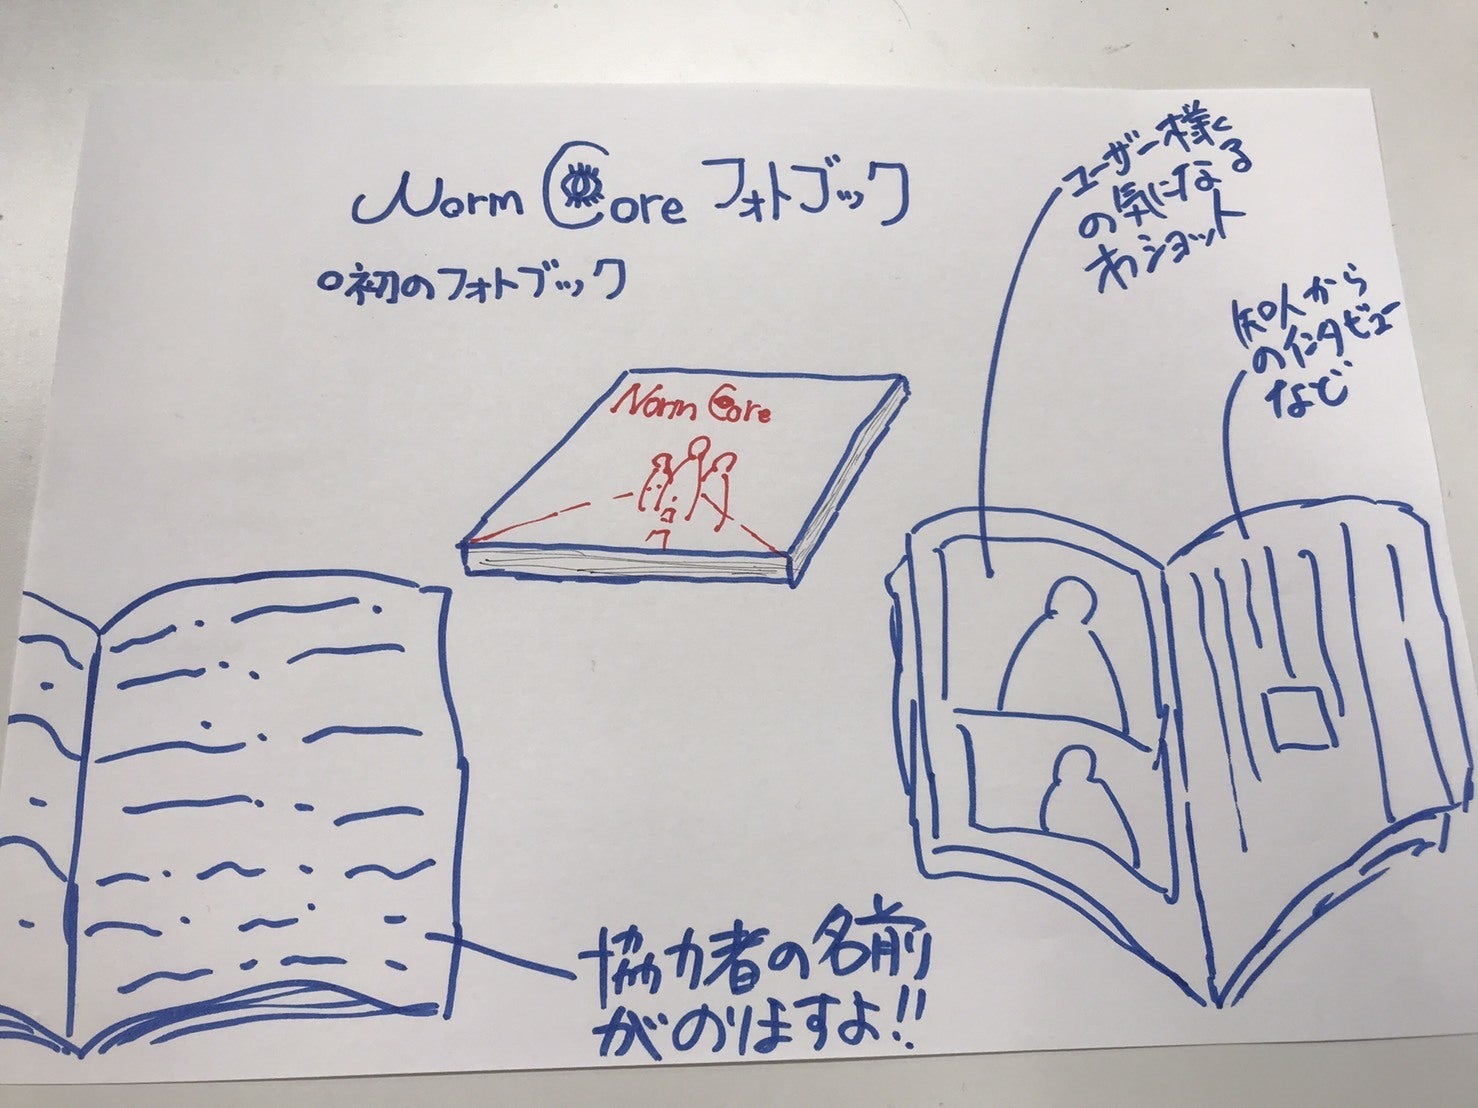 Norm Core フォトブック
○初のフォトブック
Norm Core
ユーザー様
の気になる
オフショット
知人から
のインタビュー
など
協力者の名前
がのりますよ!!